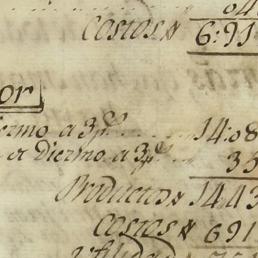 04
Costos $ 6:91
or
ermo a 3 p% 14:08
a Diezmo a 3 p% 35
Productos $ 1443
Costos $ 691